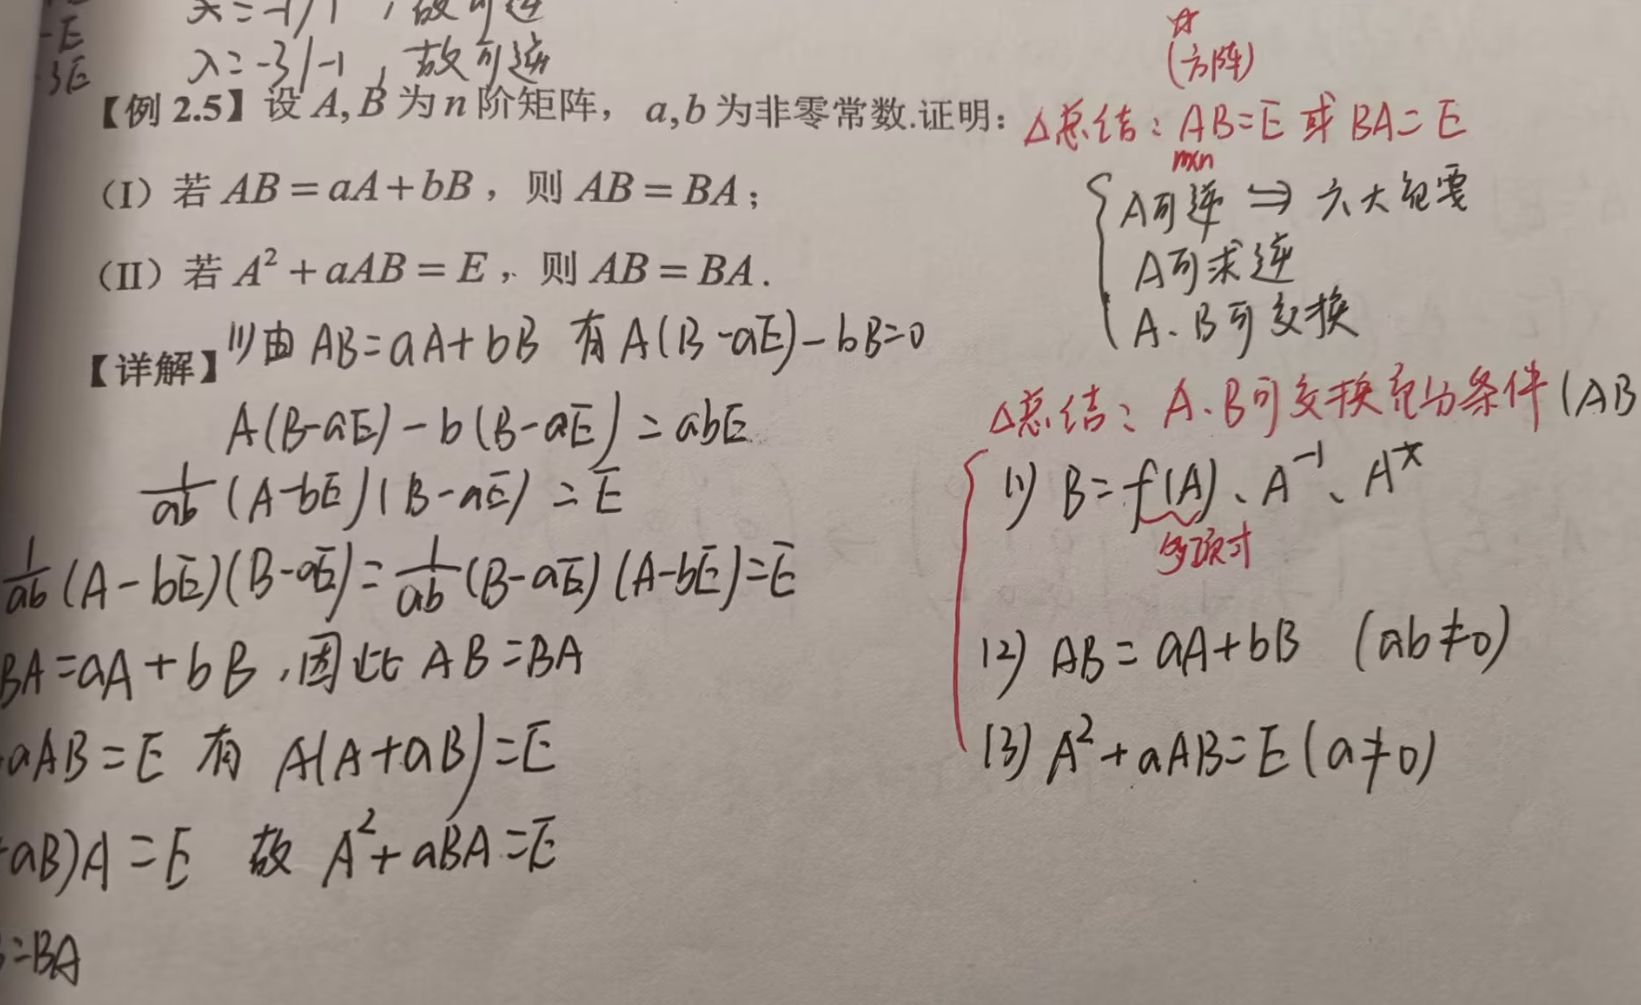 -E
λ=-1/1，故可逆
-3E
λ=-3/-1，故可逆
【例 2.5】设 A,B 为 n 阶矩阵，a,b 为非零常数.证明：
（I）若 AB=aA+bB，则 AB=BA；
（II）若 A²+aAB=E，则 AB=BA.
【详解】(1)由 AB=aA+bB 有 A(B-aE)-bB=0
A(B-aE)-b(B-aE)=abE
1/ab (A-bE)(B-aE)=E
1/ab (A-bE)(B-aE)=1/ab (B-aE)(A-bE)=E
BA=aA+bB，因此 AB=BA
aAB=E 有 A(A+aB)=E
aB)A=E 故 A²+aBA=E
=BA
☆
(方阵)
△总结：AB=E 或 BA=E
m×n
A可逆 ⇒ 六大充要
A可求逆
A、B可交换
△总结：A、B可交换充分条件(AB
(1) B=f(A)、A⁻¹、A*
多项式
(2) AB=aA+bB (ab≠0)
(3) A²+aAB=E (a≠0)